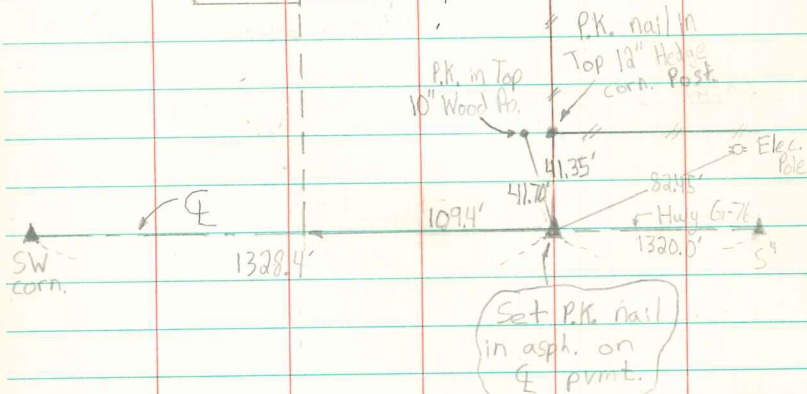 P.K. nail in
Top 12" Hedge
corn. Post.
P.K. in Top
10" Wood Po.
Elec.
Pole
41.35'
41.70'
82.45'
℄
109.4'
Hwy G-76
SW
corn.
1328.4'
1320.0'
Set P.K. nail
in asph. on
℄ pvmt.